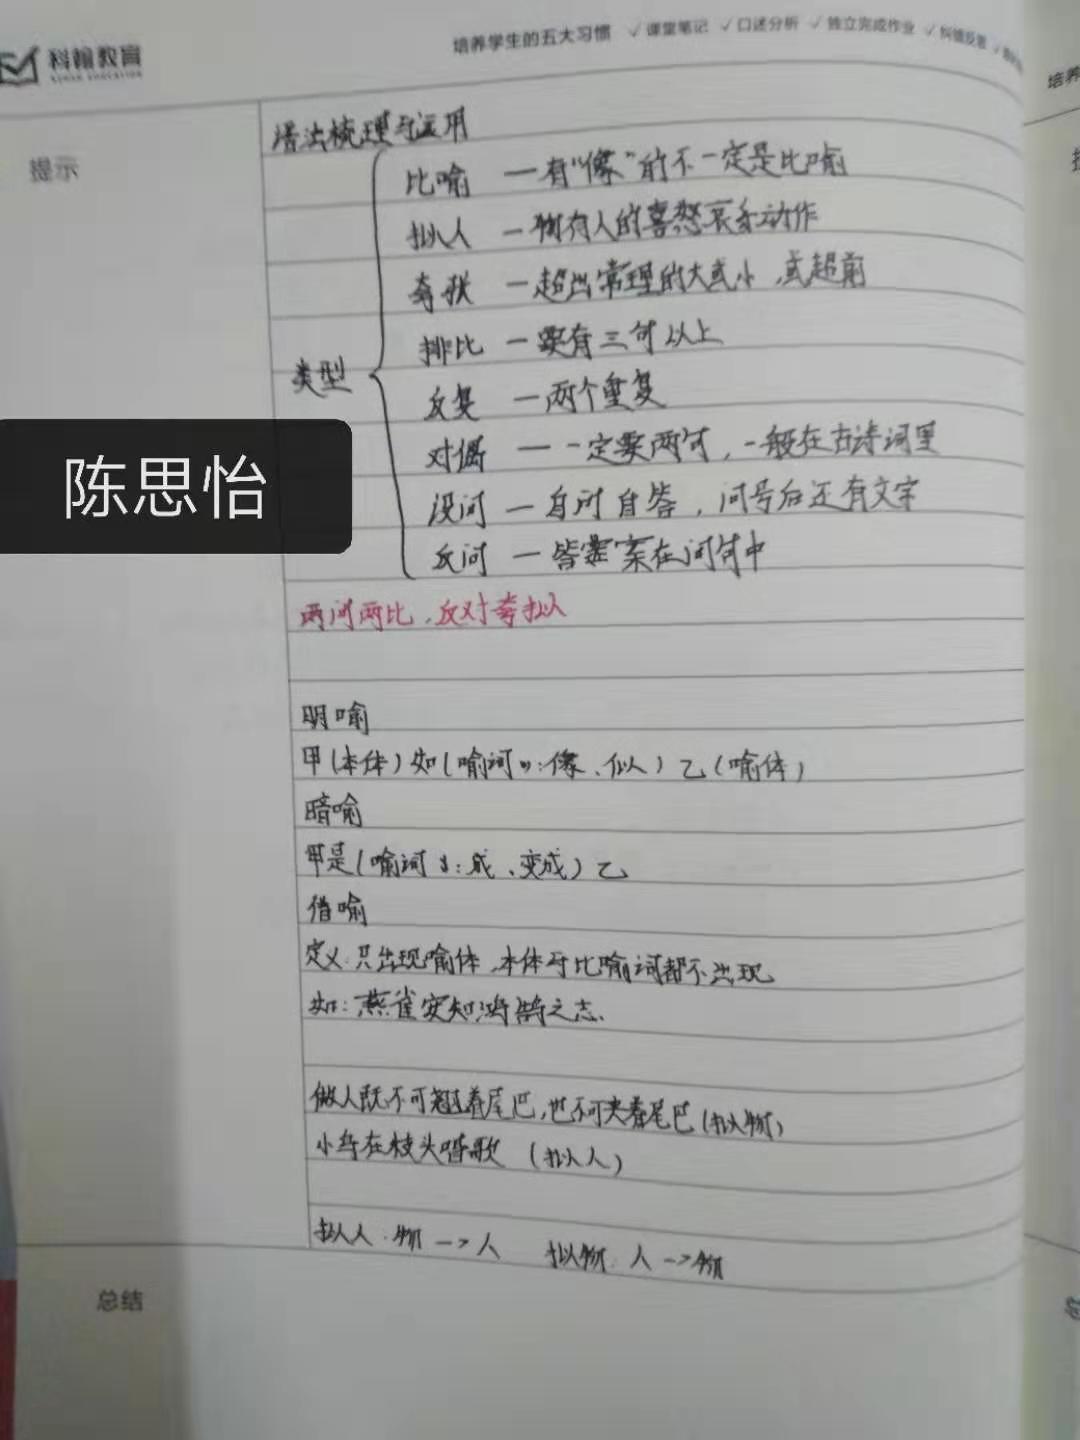 科翰教育
培养学生的五大习惯 ✓课堂笔记 ✓口述分析 ✓独立完成作业 ✓纠错反思
培养
提示
语法梳理与运用
类型
比喻 — 有“像”的不一定是比喻
拟人 — 物有人的喜怒哀乐动作
夸张 — 超出常理的大或小,或超前
排比 — 要有三句以上
反复 — 两个重复
对偶 — 一定要两句,一般在古诗词里
设问 — 自问自答,问号后还有文字
反问 — 答案在问句中
陈思怡
两问两比,反对夸拟人
明喻
甲(本体)如(喻词:像、似)乙(喻体)
暗喻
甲是(喻词:成、变成)乙
借喻
定义:只出现喻体,本体与比喻词都不出现
如:燕雀安知鸿鹄之志.
做人既不可翘着尾巴,也不可夹着尾巴(拟物)
小鸟在枝头唱歌 (拟人)
拟人:物-->人 拟物:人-->物
总结